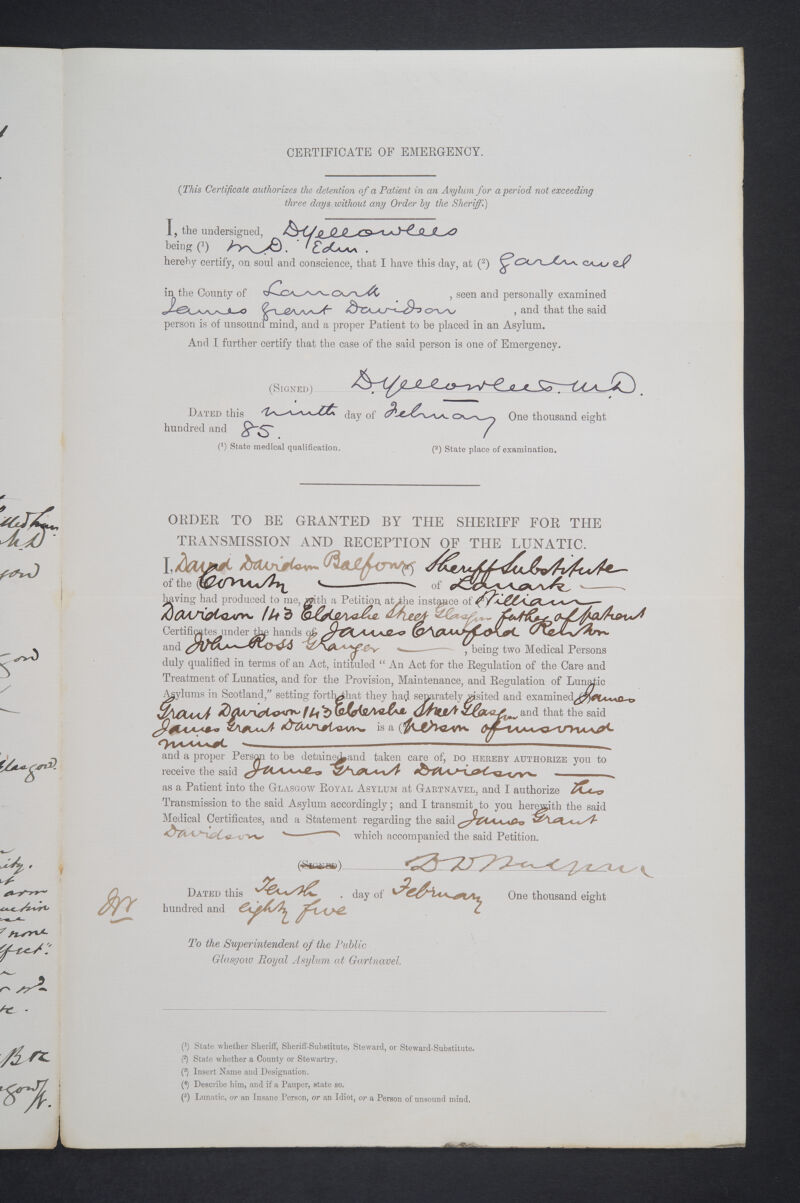 CERTIFICATE OF EMERGENCY.
(This Certificate authorizes the detention of a Patient in an Asylum for a period not exceeding
three days without any Order by the Sheriff.)
I, the undersigned, D Yellowlees
being (1) M.D. Edin.
hereby certify, on soul and conscience, that I have this day, at (2) Gartnavel
in the County of Lanark, seen and personally examined
James Grant Davidson, and that the said
person is of unsound mind, and a proper Patient to be placed in an Asylum.
And I further certify that the case of the said person is one of Emergency.
(SIGNED) D. Yellowlees. M.D.
DATED this ninth day of February One thousand eight
hundred and 85.
(1) State medical qualification. (2) State place of examination.
ORDER TO BE GRANTED BY THE SHERIFF FOR THE
TRANSMISSION AND RECEPTION OF THE LUNATIC.
I, David Davidson Balfour, Sheriff Substitute
of the County of Lanark
having had produced to me, with a Petition at the instance of William
Davidson 143 Elderslie Street Glasgow father of patient
Certificates under the hands of James Crawford Renton
and John Ross Granger, being two Medical Persons
duly qualified in terms of an Act, intituled "An Act for the Regulation of the Care and
Treatment of Lunatics, and for the Provision, Maintenance, and Regulation of Lunatic
Asylums in Scotland," setting forth that they had separately visited and examined James
Grant Davidson 143 Elderslie Street Glasgow and that the said
James Grant Davidson is a (person of unsound
mind
and a proper Person to be detained and taken care of, DO HEREBY AUTHORIZE you to
receive the said James Grant Davidson
as a Patient into the GLASGOW ROYAL ASYLUM at GARTNAVEL, and I authorize his
Transmission to the said Asylum accordingly; and I transmit to you herewith the said
Medical Certificates, and a Statement regarding the said James Grant
Davidson which accompanied the said Petition.
(SIGNED) D D Balfour
DATED this Tenth day of February One thousand eight
hundred and eighty five
To the Superintendent of the Public
Glasgow Royal Asylum at Gartnavel.
(1) State whether Sheriff, Sheriff-Substitute, Steward, or Steward-Substitute.
(2) State whether a County or Stewartry.
(3) Insert Name and Designation.
(4) Describe him, and if a Pauper, state so.
(5) Lunatic, or an Insane Person, or an Idiot, or a Person of unsound mind.